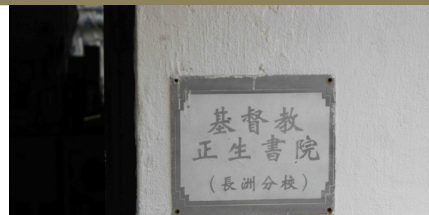 基督教
正生書院
(長洲分校)